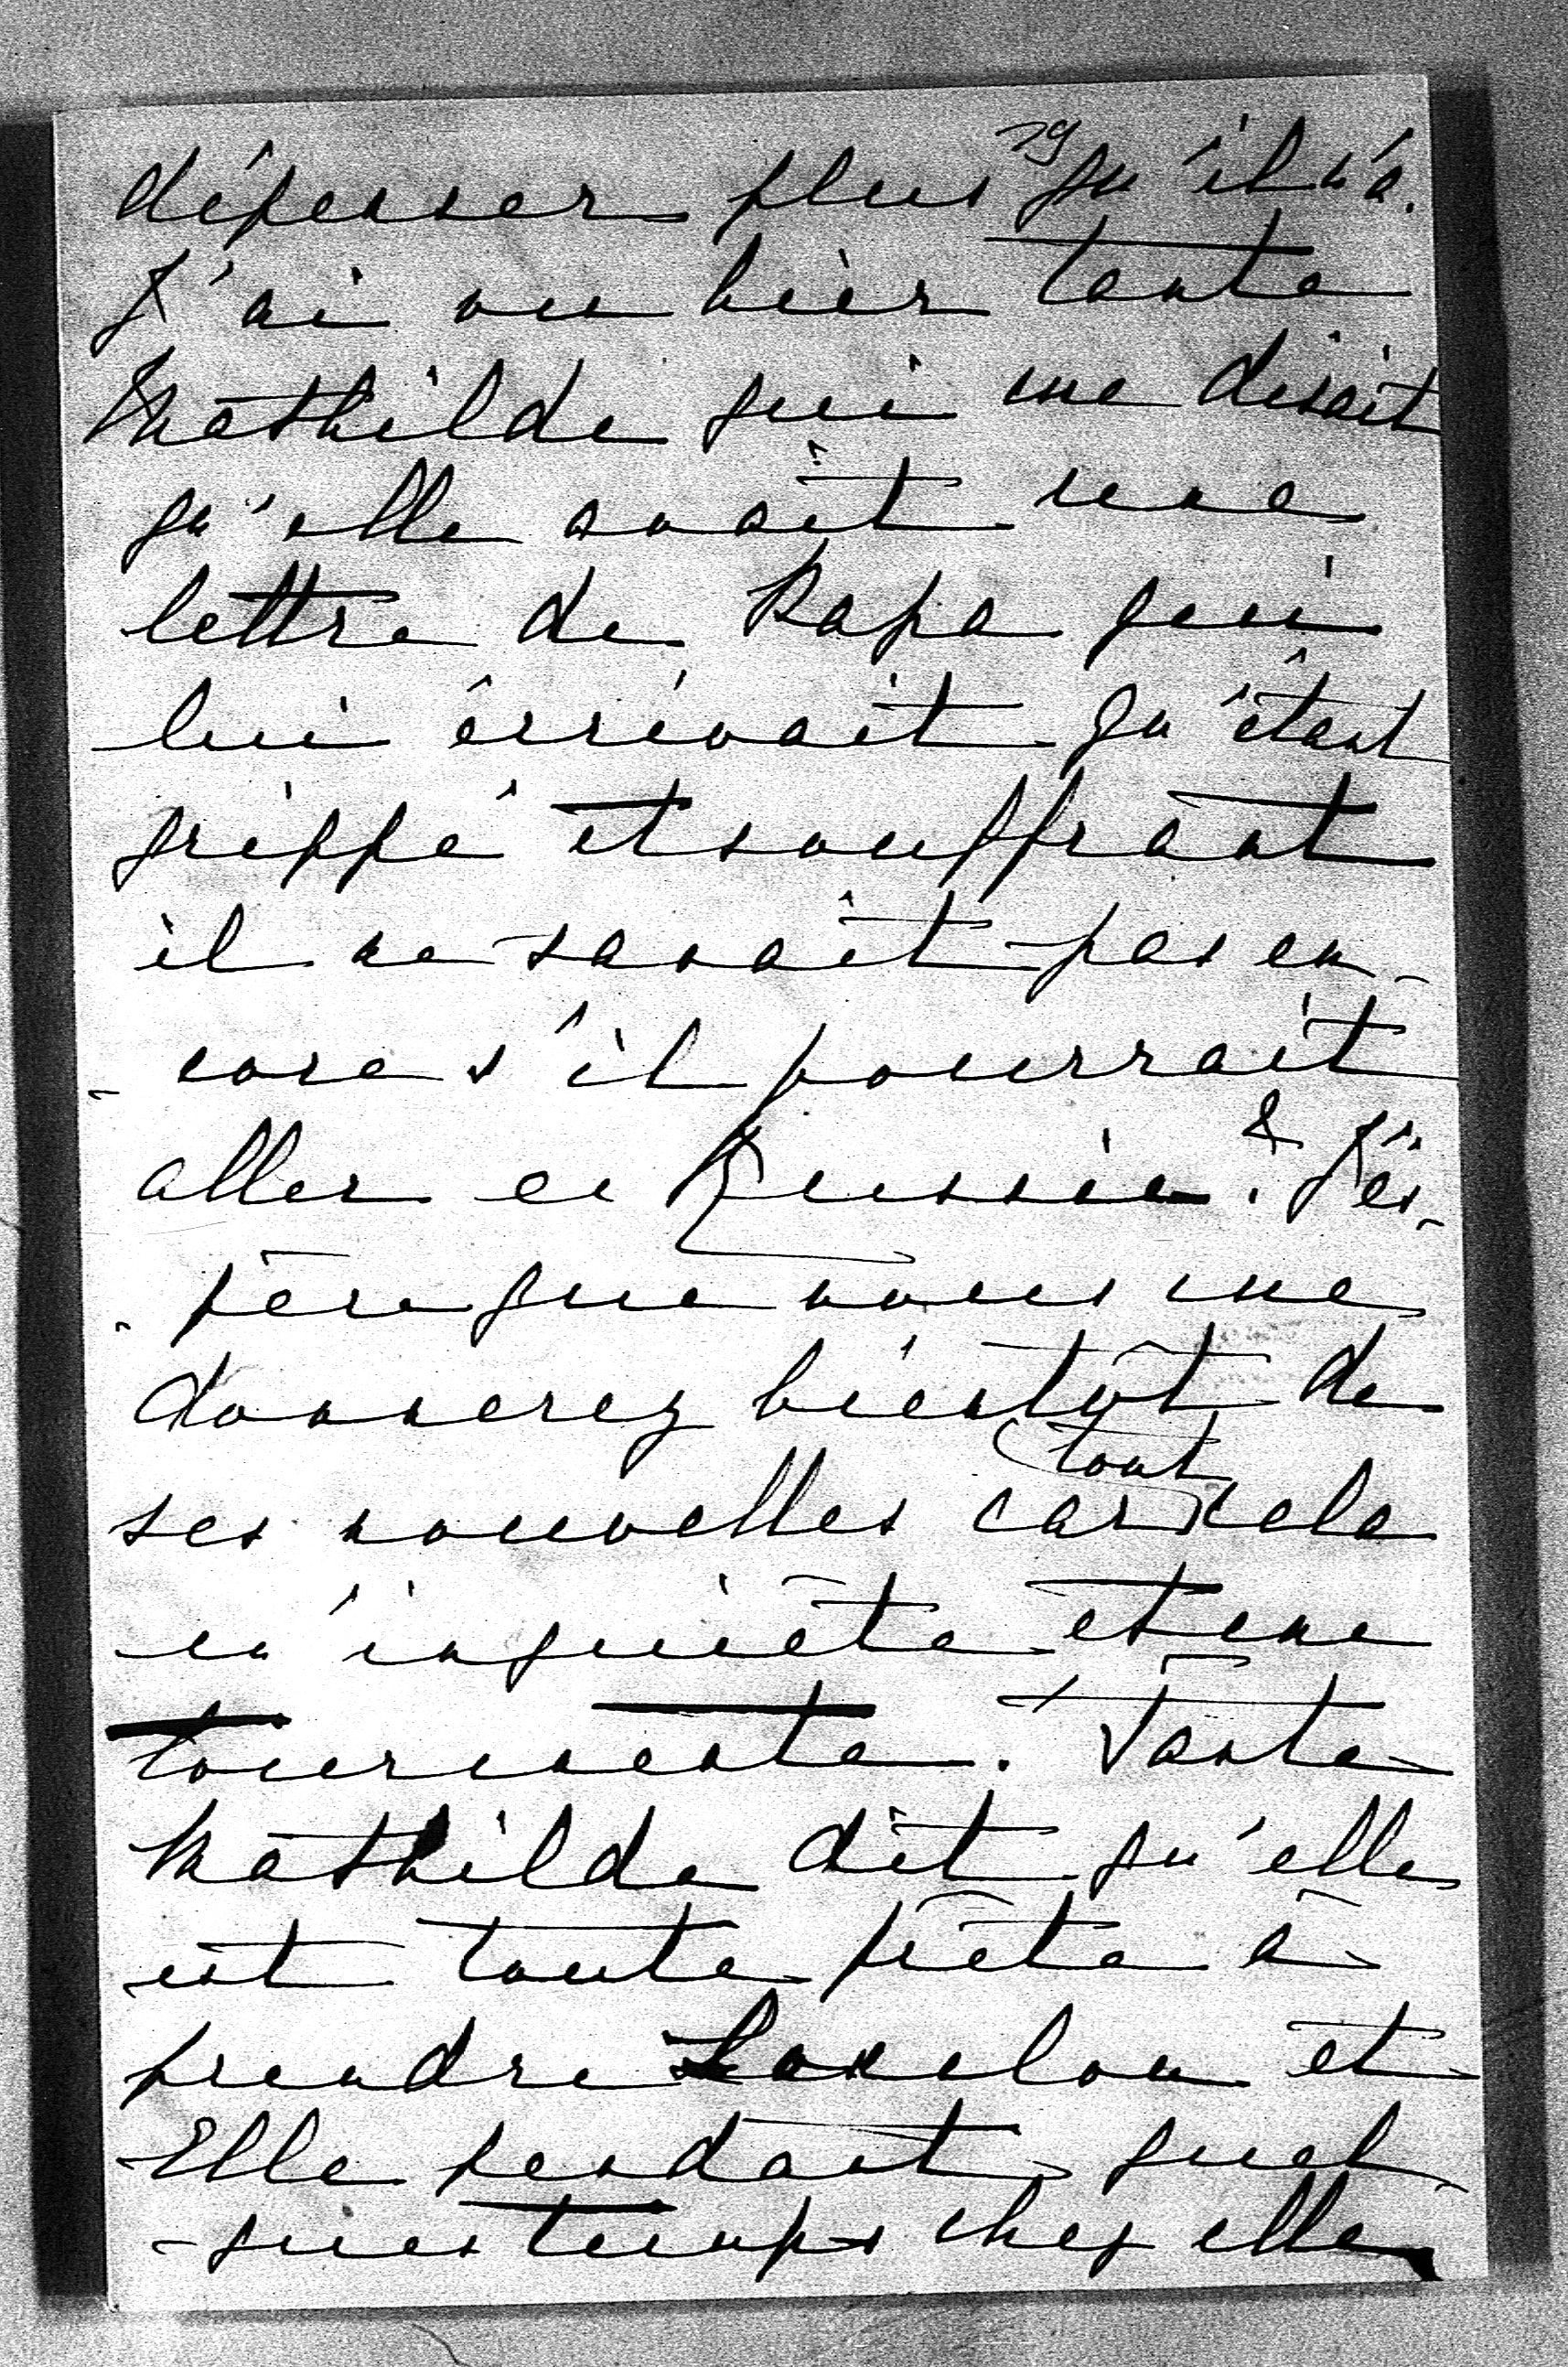 29
dépenser plus qu'il n'a.
J'ai vu hier tante
Mathilde qui me disait
qu'elle avait une
lettre de Papa qui
lui écrivait qu'étant
grippé et souffrant
il ne savait pas en-
-core s'il pourrait
aller en Russie. & J'es-
-père que vous me
donnerez bientôt de
ses nouvelles car tout cela
m'inquiète et me
tourmente. Tante
Mathilde dit qu'elle
est toute prête à
prendre et
Elle pendant quel-
-ques temps chez elle